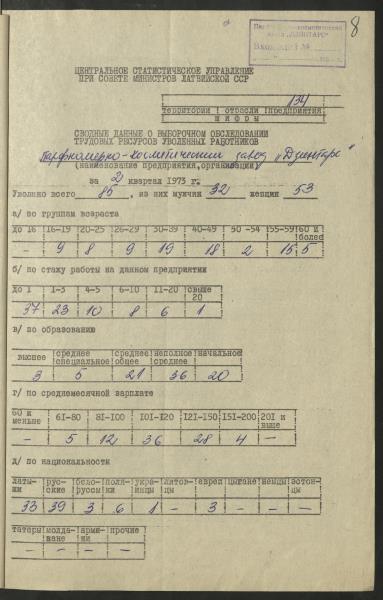 8
Парфюмерно-косметический
завод „ДЗИНТАРС"
Вход. №
ЦЕНТРАЛЬНОЕ СТАТИСТИЧЕСКОЕ УПРАВЛЕНИЕ
ПРИ СОВЕТЕ МИНИСТРОВ ЛАТВИЙСКОЙ ССР
134
территории отрасли предприятия
ШИФРЫ
СВОДНЫЕ ДАННЫЕ О ВЫБОРОЧНОМ ОБСЛЕДОВАНИИ
ТРУДОВЫХ РЕСУРСОВ УВОЛЕННЫХ РАБОТНИКОВ
Парфюмерно-косметический завод „Дзинтарс"
(наименование предприятия, организации)
за 2 квартал 1973 г.
Уволено всего 85, из них мужчин 32 женщин 53
а/ по группам возраста
до 16 16-19 20-25 26-29 30-39 40-49 50-54 55-59 60 и более
- 9 8 9 19 18 2 15 5
б/ по стажу работы на данном предприятии
до 1 1-3 4-5 6-10 11-20 свыше 20
37 23 10 8 6 1
в/ по образованию
высшее среднее специальное среднее общее неполное среднее начальное
3 5 21 36 20
г/ по среднемесячной зарплате
60 и меньше 61-80 81-100 101-120 121-150 151-200 201 и выше
- 5 12 36 28 4 -
д/ по национальности
латыши русские белоруссы поляки украинцы литовцы евреи цыгане немцы эстонцы
33 39 3 6 1 - 3 - - -
татары молдаване армяни прочие
- - - -